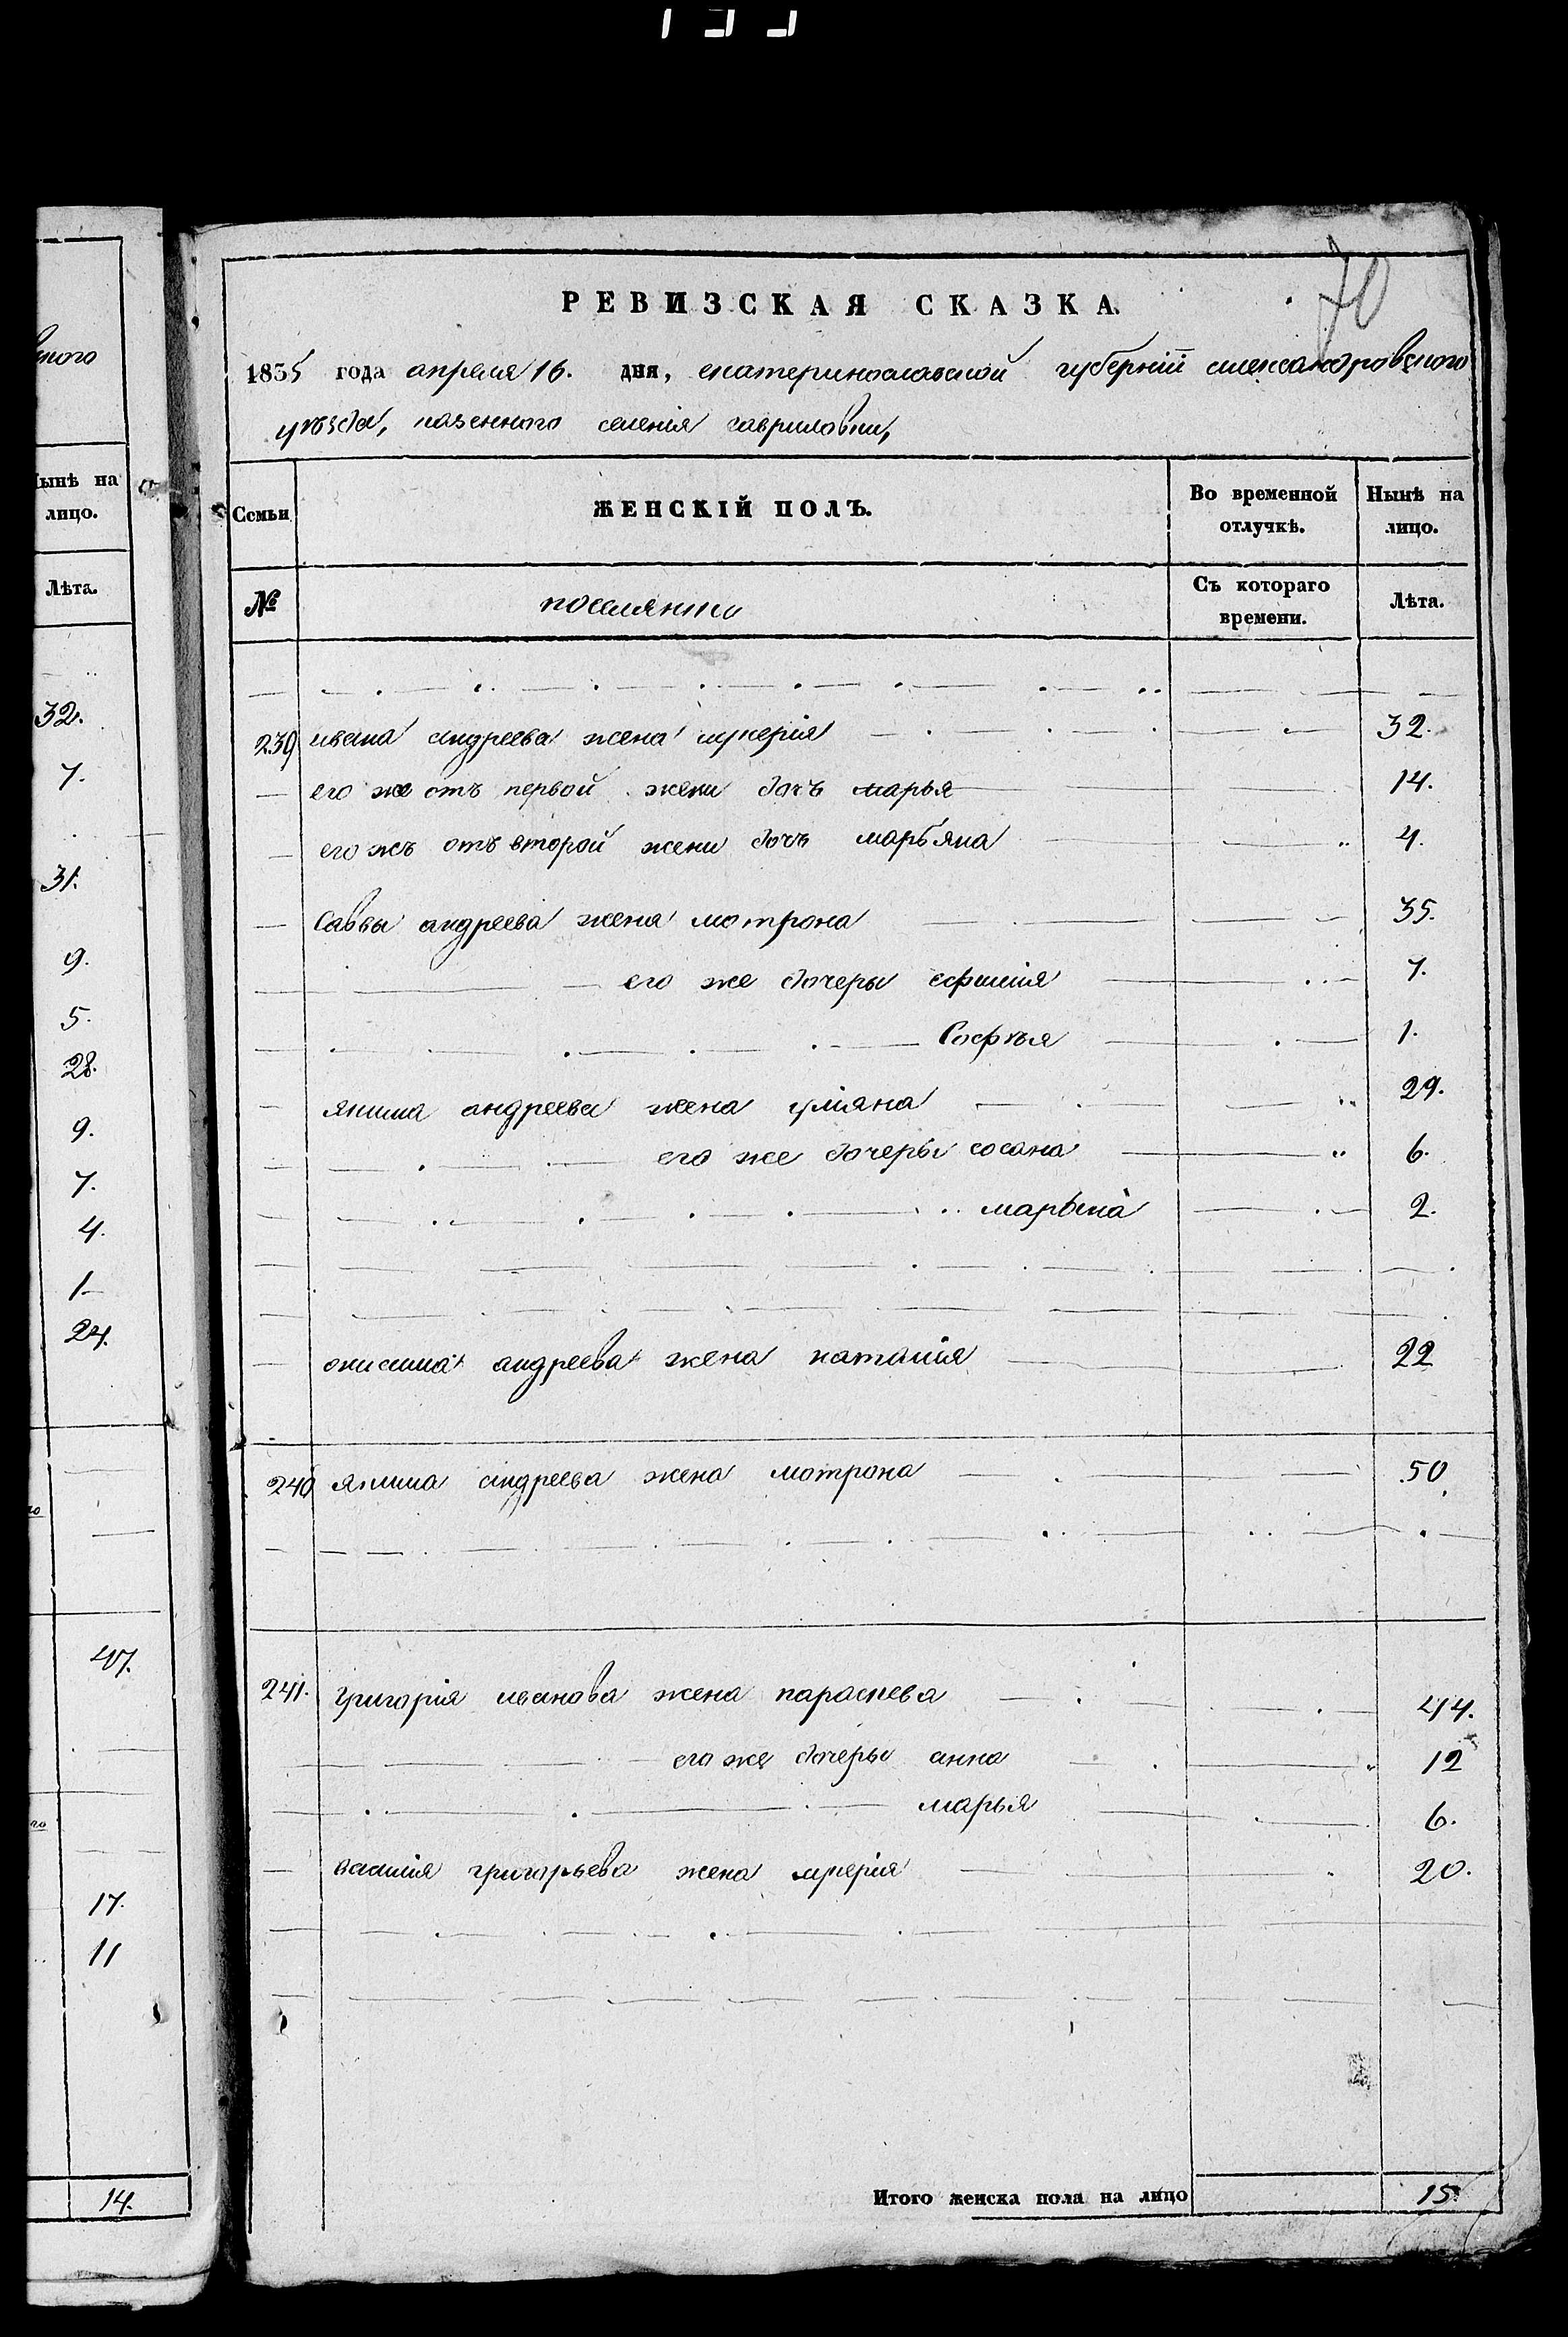 ного
Нынѣ на
лицо.
Лѣта.
32.
7.
31.
9.
5.
28.
9.
7.
4.
1
24.
47.
17.
11
14.
70
РЕВИЗСКАЯ СКАЗКА.
1835 года апреля 16. дня, екатеринославской губерніи александровского
уѣзда, казенного селенія гавриловки,
Семьи ЖЕНСКІЙ ПОЛЪ. Во временной отлучкѣ. Нынѣ на лицо.
№ поселянки Съ котораго времени. Лѣта.
239 ивана андреева жена лукерія 32.
его же отъ первой жени дочъ марья 14.
его жъ отъ второй жени дочъ марьяна 4.
Саввы андреева жена мотрона 35.
его же дочеры ефимія 7.
Софья 1.
якима андреева жена уліяна 29.
его же дочеры сосана 6.
марына 2.
онисима андреева жена наталія 22
240 якима андреева жена мотрона 50.
241. Григорія иванова жена параскева 44.
его же дочеры анна 12
марья 6.
василія григорьева жена лукерія 20.
Итого женска пола на лицо 15.